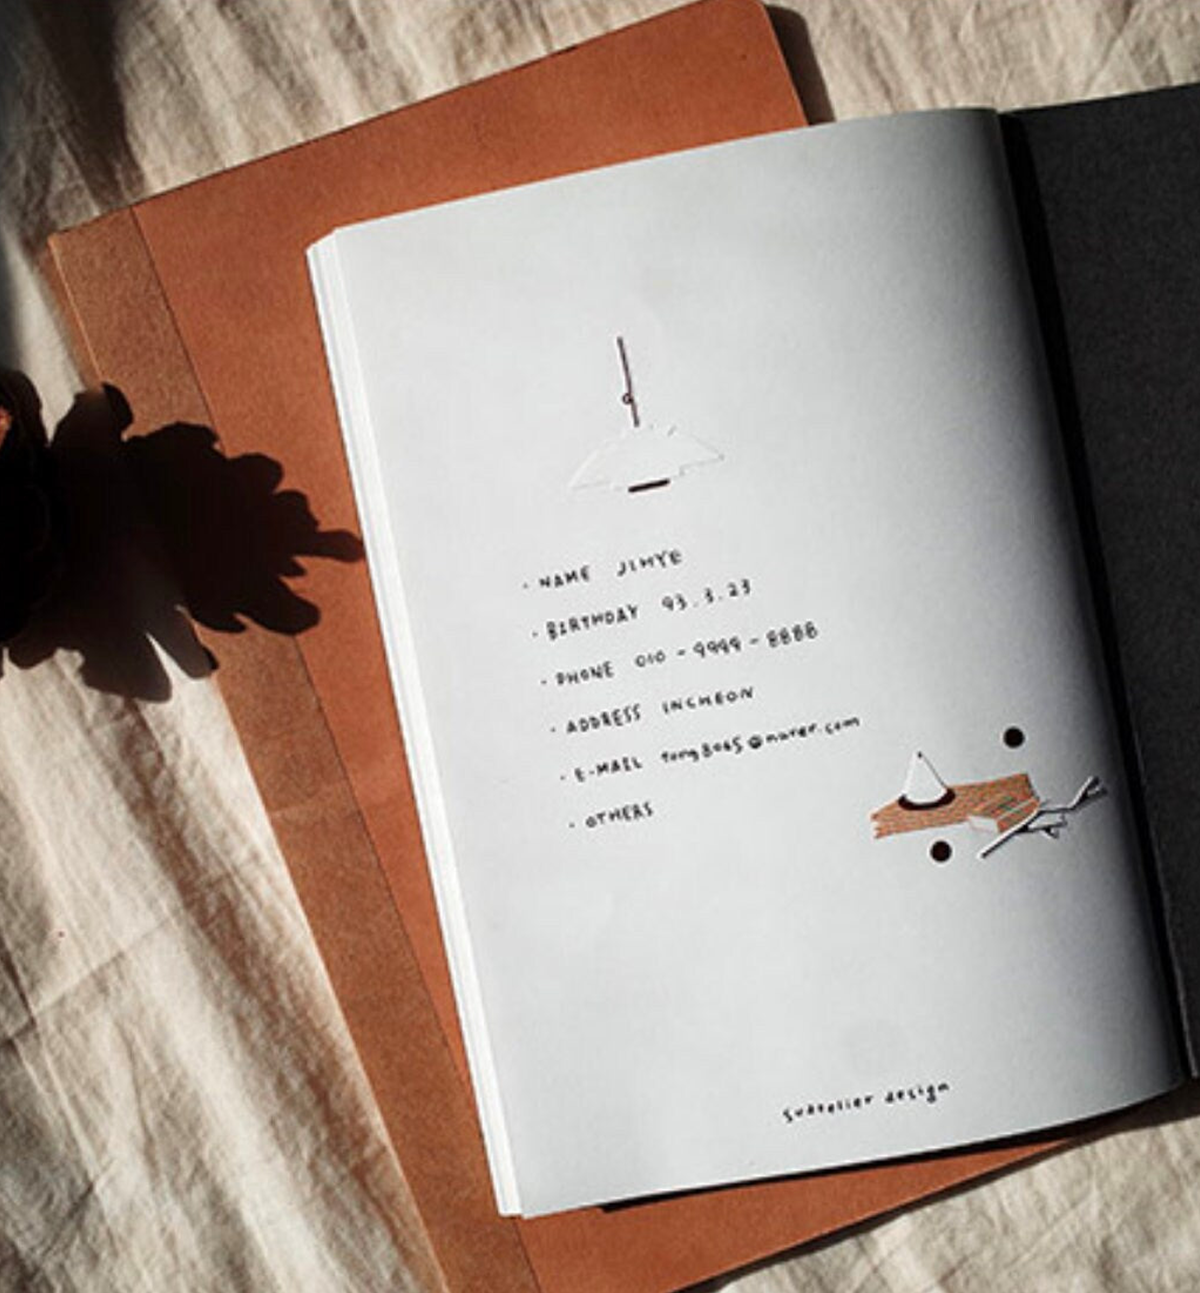 · NAME JIHYE
· BIRTHDAY 93.3.23
· PHONE 010 - 9999 - 8888
· ADDRESS INCHEON
· E-MAIL @naver.com
· OTHERS
suatelier design